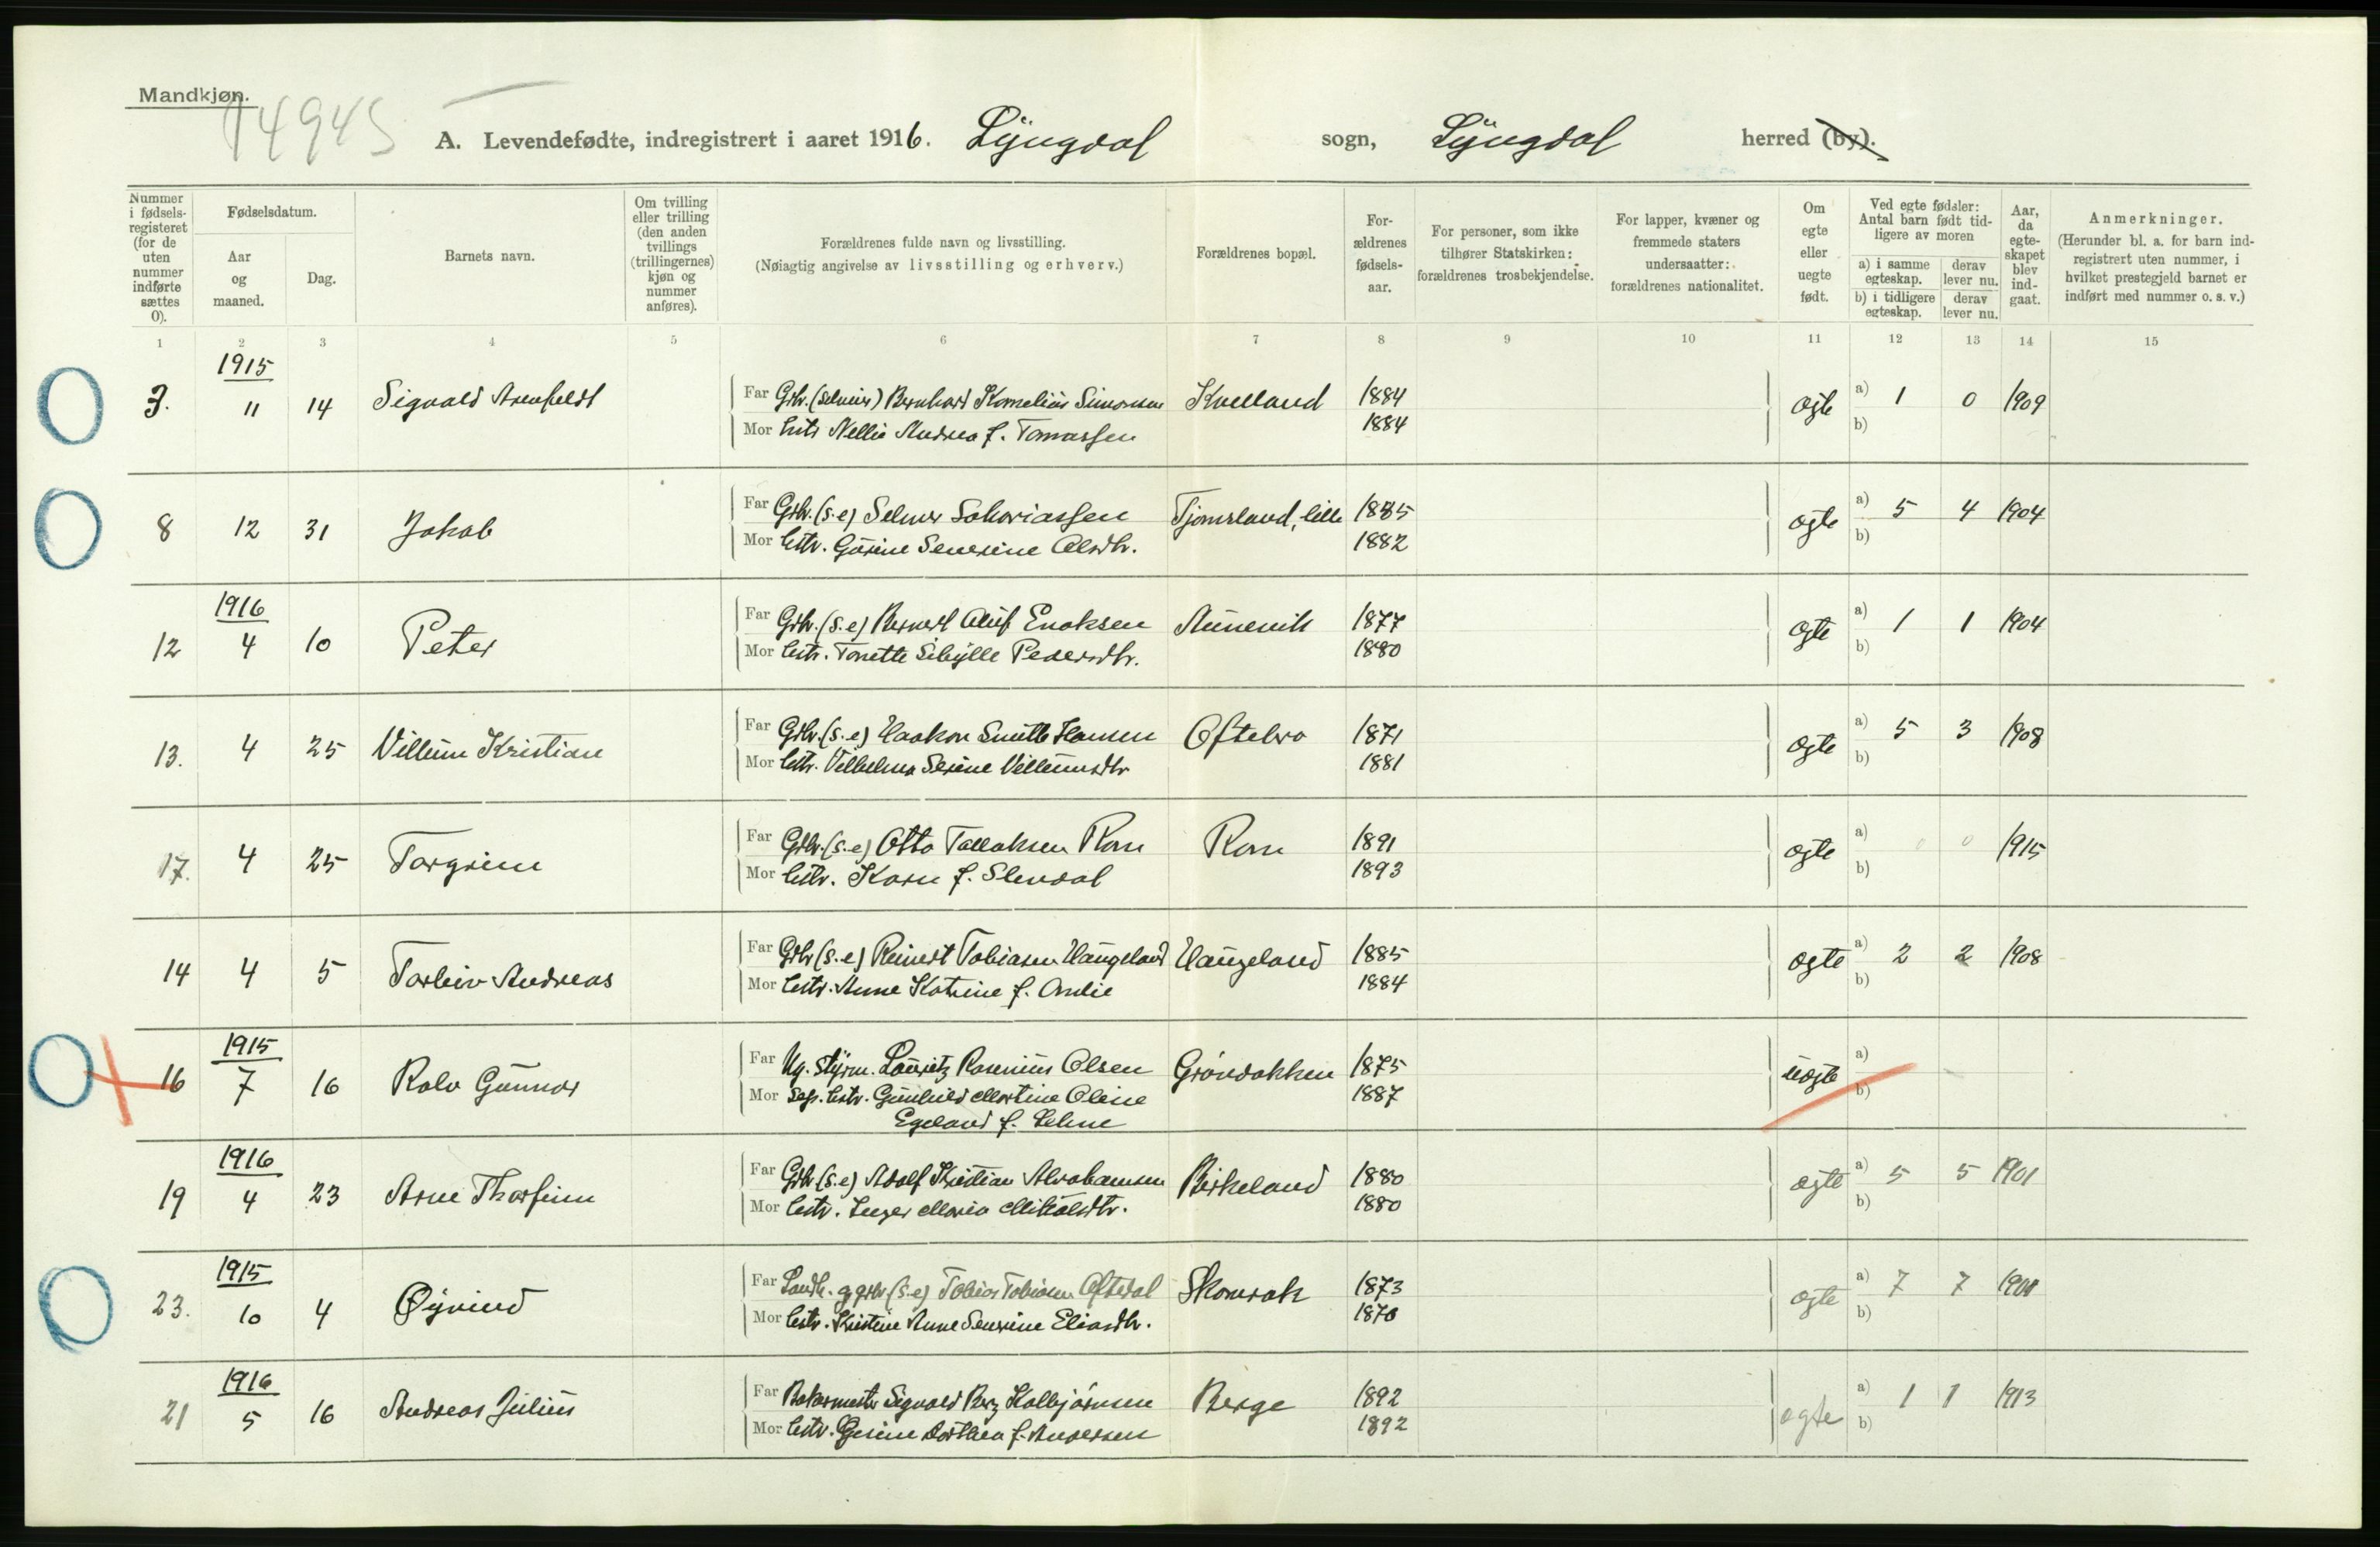 Mandkjøn.
14945
A. Levendefødte, indregistrert i aaret 1916. Lyngdal sogn, Lyngdal herred (by).
Nummer i fødsels-registeret (for de uten nummer indførte sættes 0).
Fødselsdatum.
Aar og maaned.
Dag.
Barnets navn.
Om tvilling eller trilling (den anden tvillings (trillingernes) kjøn og nummer anføres).
Forældrenes fulde navn og livsstilling.
(Nøiagtig angivelse av livsstilling og erhverv.)
Forældrenes bopæl.
For-ældrenes fødsels-aar.
For personer, som ikke tilhører Statskirken: forældrenes trosbekjendelse.
For lapper, kvæner og fremmede staters undersaatter: forældrenes nationalitet.
Om egte eller uegte født.
Ved egte fødsler: Antal barn født tid-ligere av moren
a) i samme egteskap. derav lever nu.
b) i tidligere egteskap. derav lever nu.
Aar, da egte-skapet blev ind-gaat.
Anmerkninger.
(Herunder bl. a. for barn ind-registrert uten nummer, i hvilket prestegjeld barnet er indført med nummer o. s. v.)
1 2 3 4 5 6 7 8 9 10 11 12 13 14 15
1915
3. 11 14 Sigvald Arenfeldt Far Grbr. (selveier) Bernhard Kornelius Simonsen Kvelland 1884 egte a) 1 0 1909
Mor Nellie Andrea f. Tomassen 1884 b)
8 12 31 Jakob Far Grbr. (s.e) Selmer Sakariassen Tjomsland, lille 1885 egte a) 5 4 1904
Mor hstr. Gurine Severine Olsdtr. 1882 b)
1916
12 4 10 Peter Far Grbr. (s.e) Bernert Oluf Enoksen Aunevik 1877 egte a) 1 1 1904
Mor hstr. Tonette Sibylle Pedersdtr. 1880 b)
13. 4 25 Villum Kristian Far Grbr. (s.e) Haakon Smith Hansen Oftebro 1871 egte a) 5 3 1908
Mor hstr. Vilhelma Serine Villumsdtr 1881 b)
17. 4 25 Torgrim Far Grbr. (s.e) Otto Tallaksen Rom Rom 1891 egte a) 0 0 1915
Mor hstr. Karen f. Slendal 1893 b)
14 4 5 Torleiv Andreas Far Grbr (s.e) Reinert Tobiasen Haugeland Haugeland 1885 egte a) 2 2 1908
Mor hstr. Anne Katrine f. Omlie 1884 b)
1915
16 7 16 Rolv Gunnar Far Ug. styrm. Lauritz Rosenius Olsen Grøndokken 1875 uegte a)
Mor Sep. hstr. Gunhild Martine Oline 1887 b)
Egeland f. Lehne
1916
19 4 23 Arne Thorfinn Far Grbr (s.e) Adolf Kristian Abrahamsen Birkeland 1880 egte a) 5 5 1901
Mor hstr. Inger Maria Mikalsdtr. 1880 b)
1915
23. 10 4 Øyvind Far Landh. og grbr (s.e) Tobias Tobiasen Oftedal Skomrak 1873 egte a) 7 7
Mor hstr. Kristine Anne Severine Eliasdtr. 1870 b)
1916
21 5 16 Andreas Julius Far Bakermester Sigvald Berg Kolbjørnsen Berge 1892 egte a) 1 1 1913
Mor hstr. Gesine Dorthea f. Andersen 1892 b)